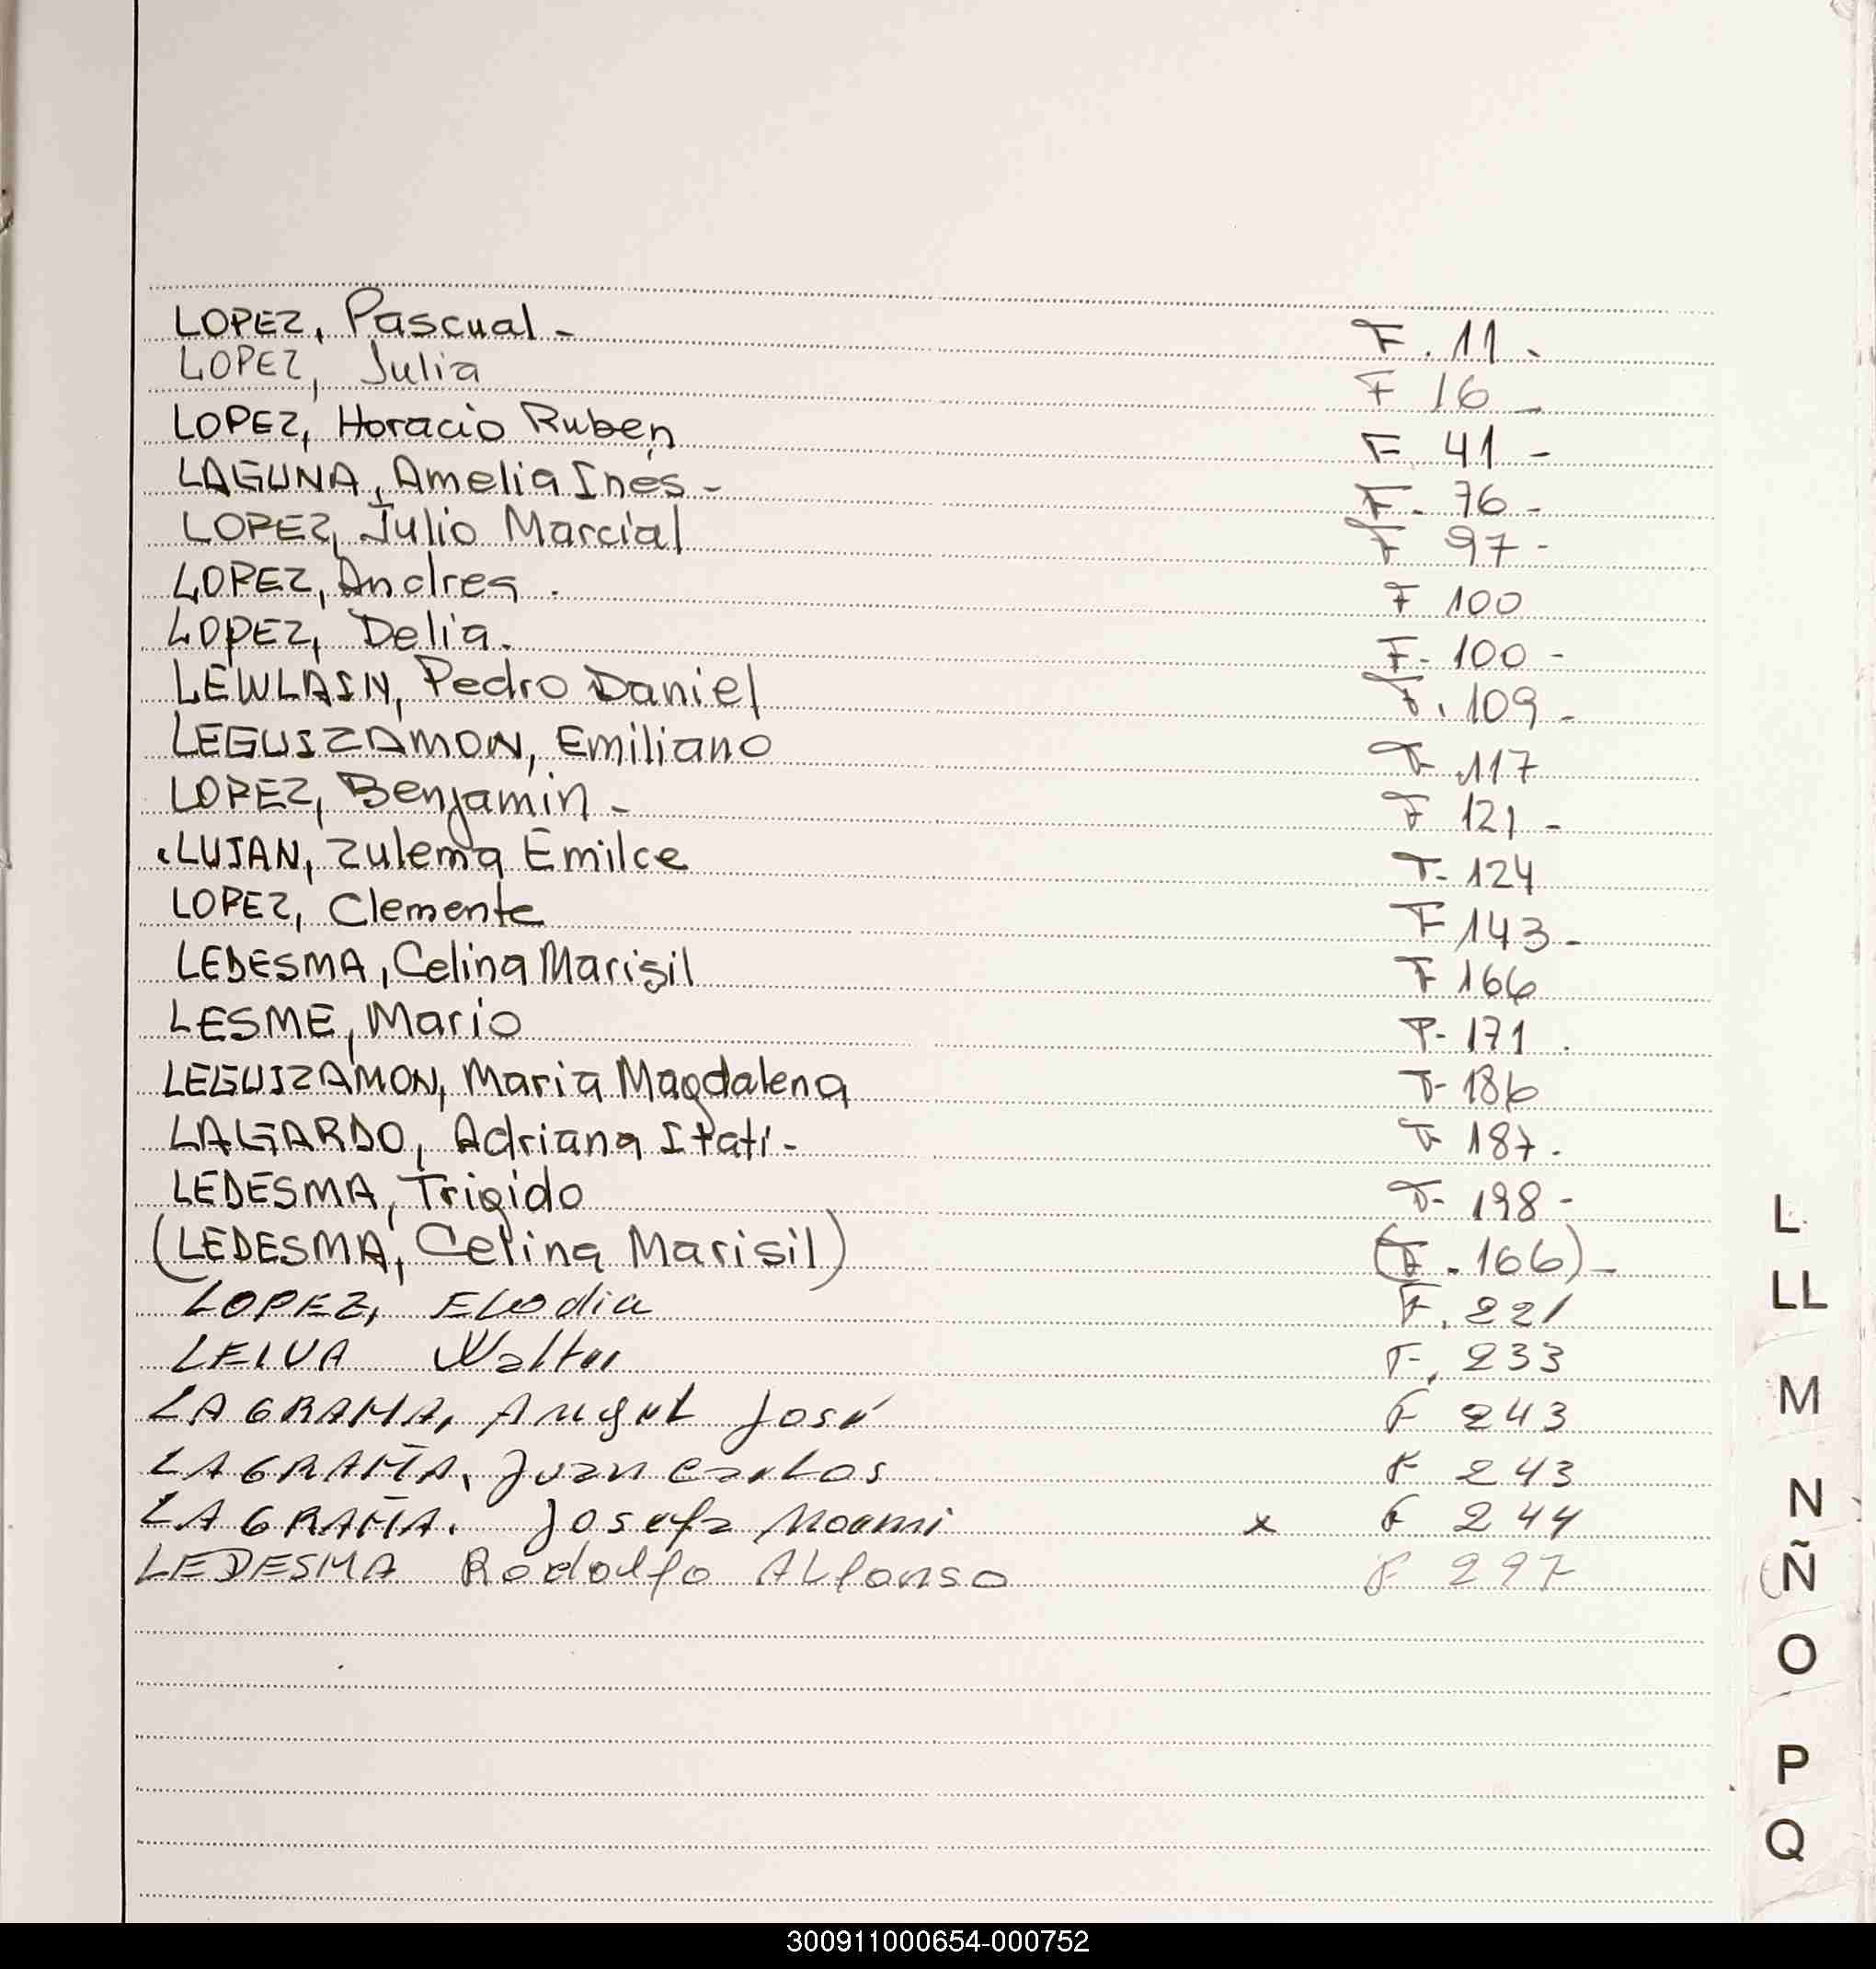 LOPEZ, Pascual - F. 11.
LOPEZ, Julia F 16 -
LOPEZ, Horacio Ruben F. 41 -
LAGUNA, Amelia Inés - F. 76 -
LOPEZ, Julio Marcial F 97 -
LOPEZ, Andres. F 100
LOPEZ, Delia. F. 100 -
LEWLASIN, Pedro Daniel F. 109 -
LEGUIZAMON, Emiliano F. 117
LOPEZ, Benjamin - F 121 -
LUJAN, Zulema Emilce F- 124
LOPEZ, Clemente F 143 -
LEDESMA, Celina Marisil F 166
LESME, Mario F- 171.
LEGUIZAMON, Maria Magdalena F- 186
LAGARDO, Adriana Itatí - F 187.
LEDESMA, Trigido F- 198 -
(LEDESMA, Celina Marisil) (F. 166) -
LOPEZ, Elodia F. 221
LEIVA Walter F. 233
LAGRAMA, Angel José F 243
LAGRAÑA, Juan Carlos F 243
LAGRAÑA. Josefa Noemi x F 244
LEDESMA Rodolfo Alfonso F 297
L
LL
M
N
Ñ
O
P
Q
300911000654-000752